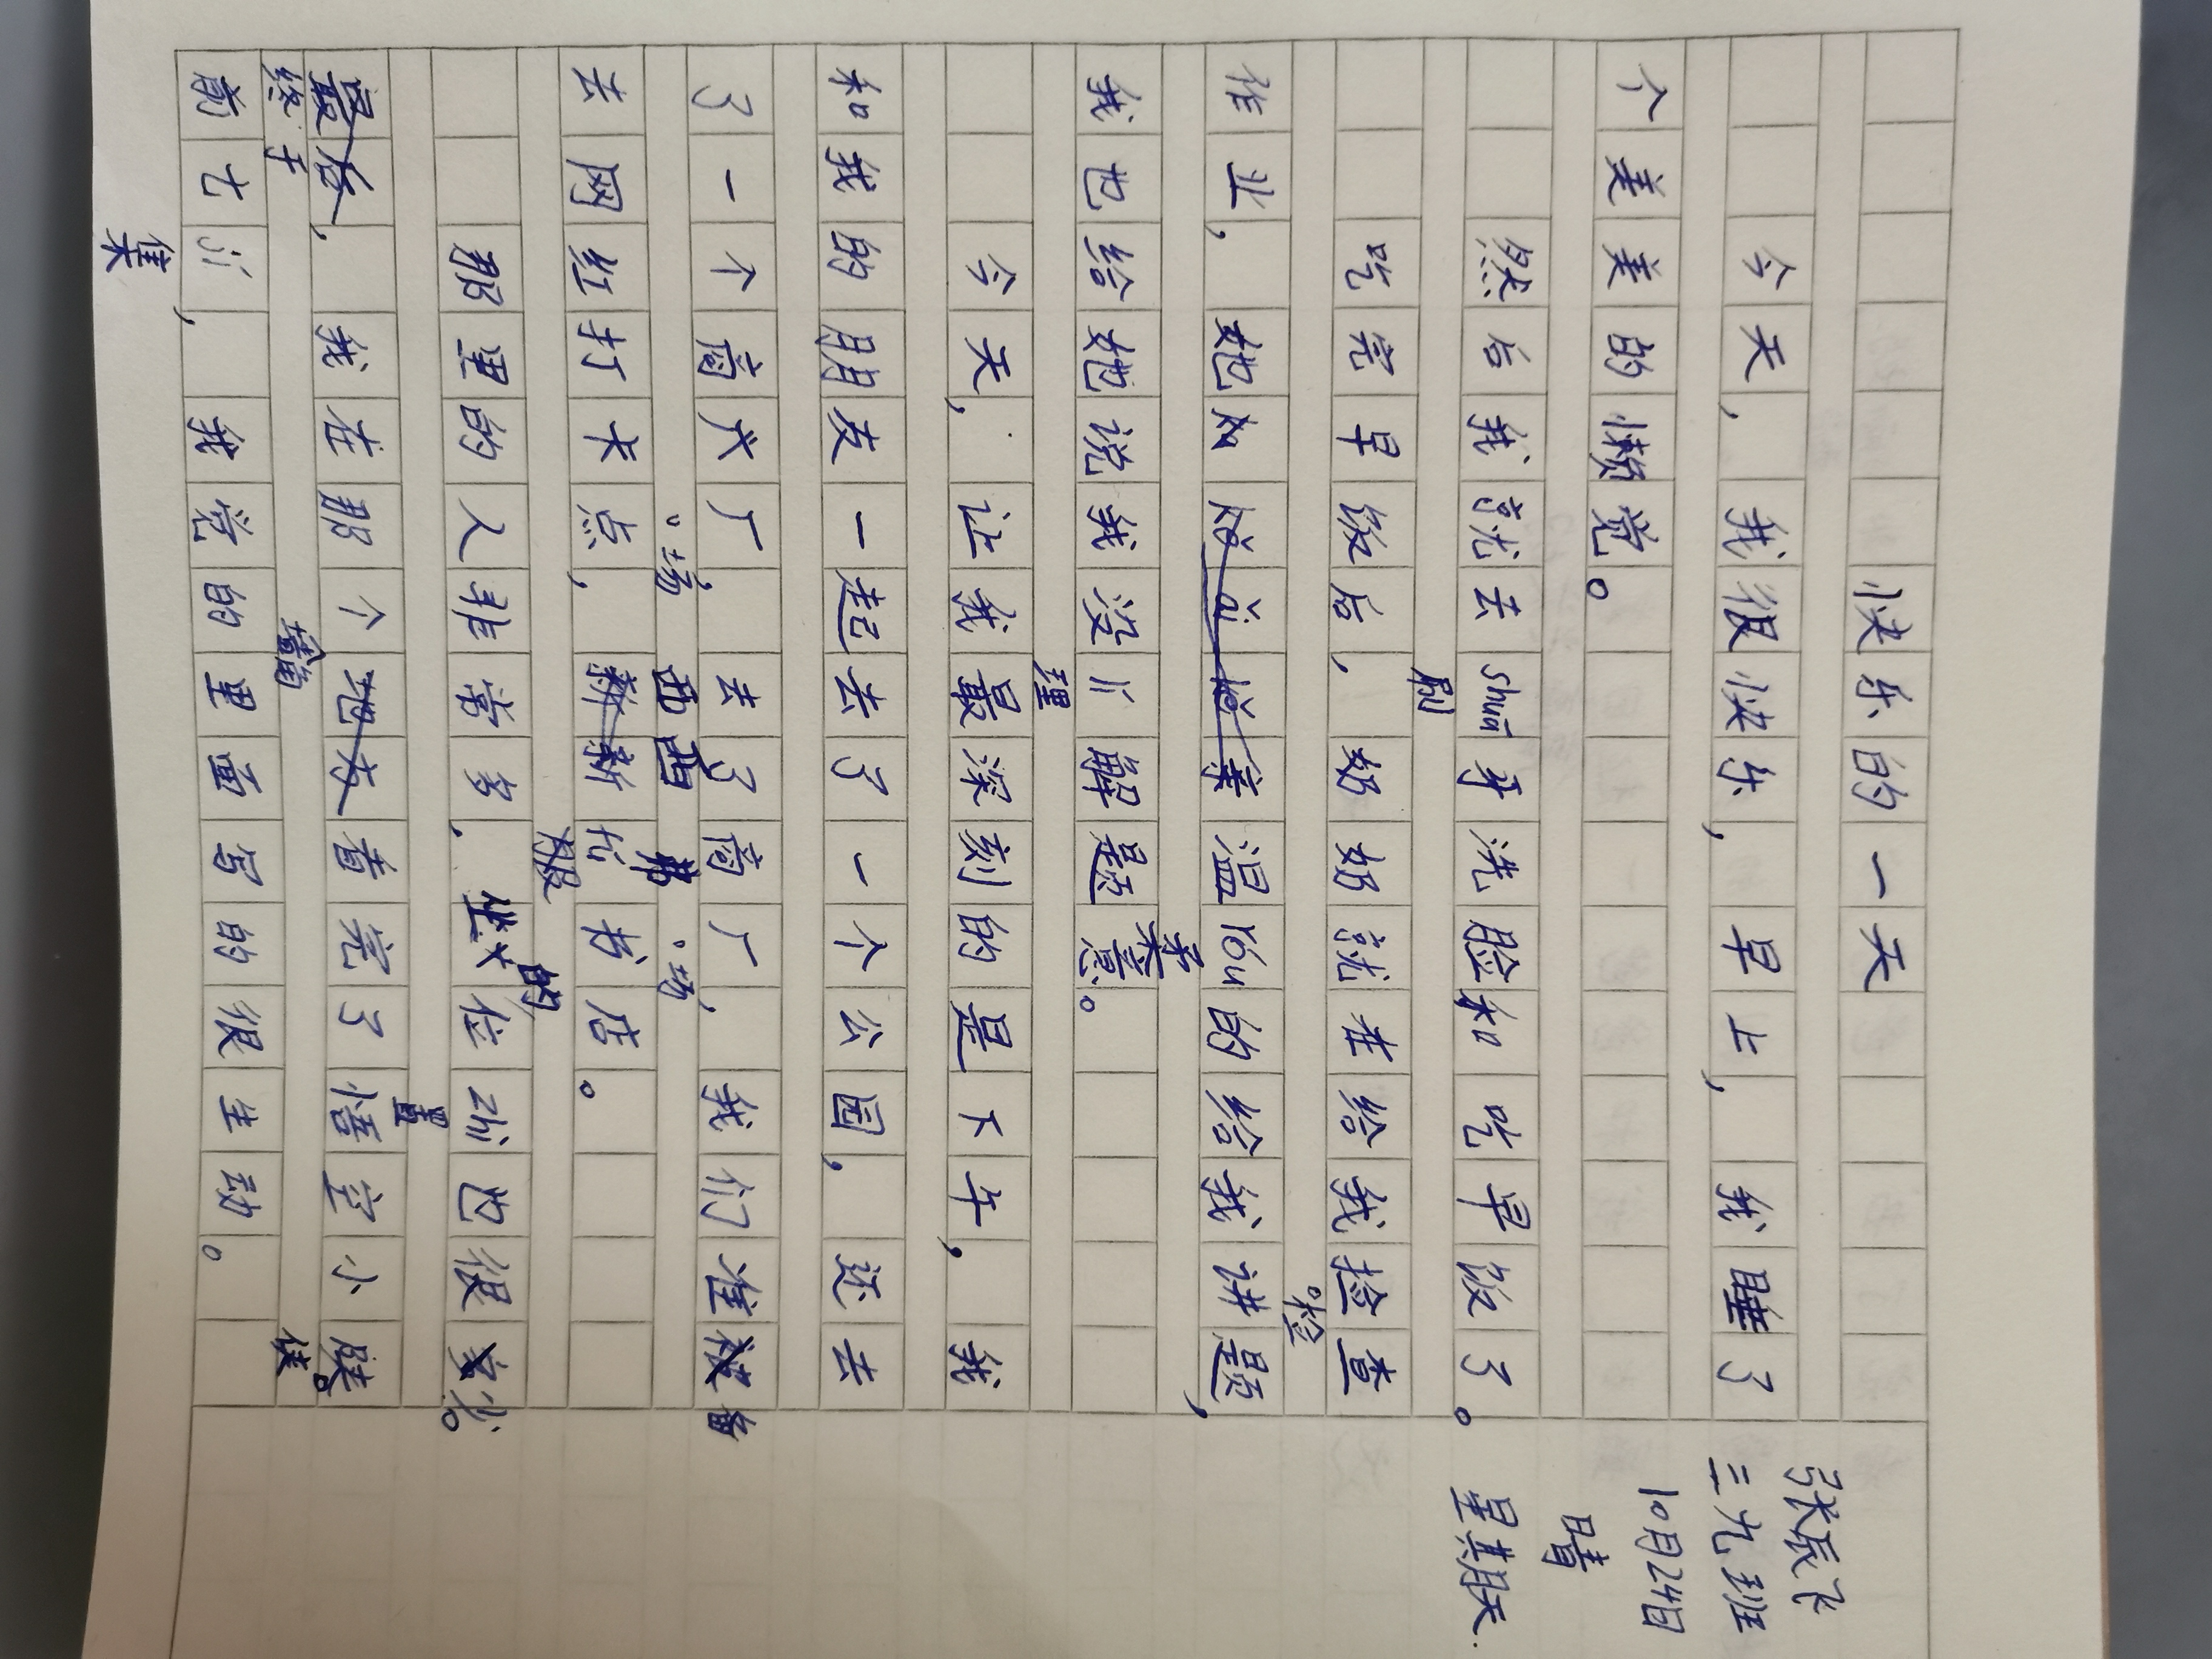 快乐的一天
今天，我很快乐，早上，我睡了
个美美的懒觉。
然后我就去shuā牙洗脸和吃早饭了。
刷
吃完早饭后，奶奶就在给我捡查
检
作业，她如亲温YóU的给我讲题，
柔
我也给她说我没li解题意。
理
今天，让我最深刻的是下午，我
和我的朋友一起去了一个公园，还去
了一个商广，去了商厂，我们准备
场
场
去网红打卡点，新新fu书店。
服
那里的人非常多，坐位zhi也很少。
的
置
我在那个地方看完了悟空小
最后，
终于
墙角
侠。
前七ji，我觉的里面写的很生动。
集
张辰飞
三九班
10月24日
晴
星期天.